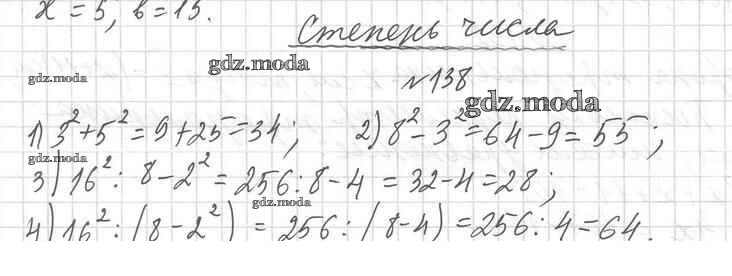 x = 5, b = 15.
Степень числа
gdz.moda
gdz.moda
№138
gdz.moda
1) 3²+5²=9+25=34; 2) 8²-3²=64-9=55;
gdz.moda
3) 16²: 8-2² = 256:8-4 = 32-4=28;
gdz.moda
gdz.moda
4) 16²: (8-2²) = 256: (8-4) =256: 4=64.